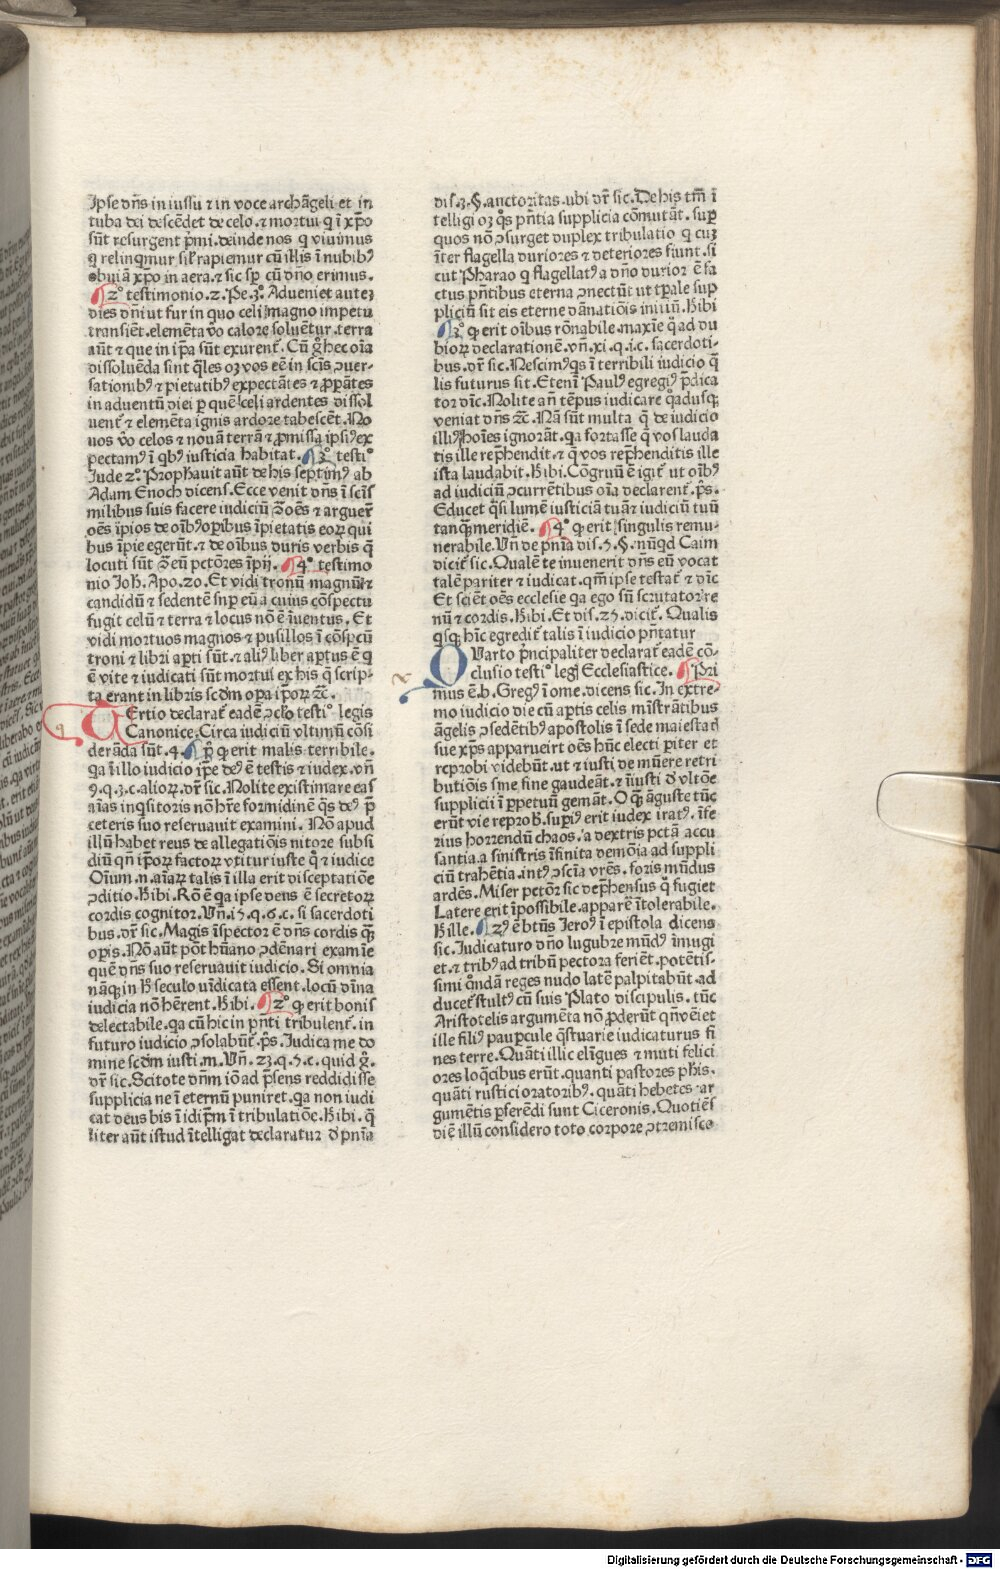 Ipse dñs in iussu ⁊ in voce archãgeli et in
tuba dei descẽdet de celo.⁊ mortui q̃ ĩ xp̃o
sũt resurgent p̃mi.deinde nos q̃ viuimus
q̃ relinq̃mur sil' rapiemur cũ illis ĩ nubibꝰ
obuiã xp̃o in aera.⁊ sic sp̃ cũ dño erimus.
2° testimonio.2.Pe.3°. Adueniet autez
dies dñi ut fur in quo celi magno impetu
transiẽt.elemẽta v̊o calore soluẽtur.terra
aũt ⁊ que in ip̃a sũt exurent᷑. Cũ g̊ hec oĩa
dissoluẽda sint q̃les oꝫ vos eẽ in scĩs ꝯuer-
sationibꝰ ⁊ pietatibꝰ expectãtes ⁊ ꝓpãtes
in aduentũ diei ꝑ quẽ celi ardentes dissol
uent᷑ ⁊ elemẽta ignis ardore tabescẽt. No
uos v̊o celos ⁊ nouã terrã ⁊ ꝓmissa ipsiꝰ ex
pectamꝰ ĩ qbꝰ iusticia habitat. 3° testi°
Jude 2°. Prophauit aũt de his septimꝰ ab
Adam Enoch dicens.Ecce venit dñs ĩ scĩs
milibus suis facere iudiciũ ꝯ̃ oẽs ⁊ arguer̃
oẽs ĩpios de oĩbꝰ oꝑibus ĩpietatis eoꝝ qui
bus ĩpie egerũt.⁊ de oĩbus duris verbis q̃
locuti sũt ꝯ̃ eũ pctõres ĩpij. 4° testimo
nio Joh̃. Apo.20. Et vidi tronũ magnũ ⁊
candidũ ⁊ sedentẽ sup̃ eũ a cuius cõspectu
fugit celũ ⁊ terra ⁊ locus nõ ẽ iuentus. Et
vidi mortuos magnos ⁊ pusillos ĩ cõsp̃cũ
troni ⁊ libri aꝑti sũt.⁊ aliꝰ liber aꝑtus ẽ q̃
ẽ vite ⁊ iudicati sũt mortui ex his q̃ scrip-
ta erant in libris scd̃m oꝑa ip̃oꝝ ⁊c̃.
Tertio declarat᷑ eadẽ ꝯclo testi° legis
Canonice.Circa iudiciũ vltimũ cõsi
derãda sũt.4. p̊ q̃ erit malis terribile.
q̃a ĩ illo iudicio ip̃e deꝰ ẽ testis ⁊ iudex.vñ
9.q.3.c.alioꝝ.dr̃ sic.Nolite existimare eas
aĩas inq̃sitoris nõ h̃re formidinẽ q̃s deꝰ p̃
ceteris suo reseruauit examini. Nõ apud
illũ habet reus de allegatiõis nitore subsi
diũ qñ ip̃oꝝ factoꝝ vtitur iuste q̃ ⁊ iudice
Oĩum.n.aĩaꝝ talis ĩ illa erit disceptatiõe
ꝯditio.Hibi. Rõ ẽ q̃a ipse deus ẽ secretoꝝ
cordis cognitor.Vñ.15.q.6.c. si sacerdoti
bus.dr̃ sic. Magis ĩspector ẽ dñs cordis q̃ꝫ
oꝑis.Nõ aũt põt hũano ꝯdẽnari examĩe
quẽ dñs suo reseruauit iudicio. Si omnia
nãq̃ꝫ in h̃ seculo vĩdicata essent.locũ dĩna
iudicia nõ hẽrent.Hibi. 2° q̃ erit bonis
delectabile.q̃a cũ hic in p̃nti tribulent᷑.in
futuro iudicio ꝯsolabũt᷑.p̃s.Judica me do
mine scd̃m iusti.m.Vñ.23.q.5.c.quid g̊.
dr̃ sic.Scitote dñm iõ ad p̃sens reddidisse
supplicia ne ĩ eternũ puniret.q̃a non iudi
cat deus bis ĩ idip̃m ĩ tribulatiõe.Hibi.q̃
liter aũt istud ĩtelligat declaratur d̃ pñia
dis.3.§.auctoritas.ubi dr̃ sic.De his tm̃ ĩ
telligi oꝫ q̊s pñtia supplicia cõmutãt.sup̃
quos nõ ꝯsurget duplex tribulatio q̃ cuꝫ
ĩter flagella duriores ⁊ deteriores fiunt.si
cut Pharao q̃ flagellatꝰ a dño durior ẽ fa
ctus pñtibus eterna ꝯnectũt ut tꝑale sup
pliciũ sit eis eterne dãnatiõis initiũ.Hibi
3° q̃ erit oĩbus rõnabile.maxĩe q̊ad du
bioꝝ declarationẽ.vñ.xi.q.i.c.sacerdoti-
bus.dr̃ sic.Nescimꝰ q̃s ĩ terribili iudicio q̃
lis futurus sit.Etenĩ Paulꝰ egregiꝰ p̃dica
tor dĩc.Nolite añ tẽpus iudicare q̊adusq̃ꝫ
veniat dñs ⁊c̃. Nã sũt multa q̃ de iudicio
illiꝰ hoĩes ignorãt.q̃a fortasse q̃ vos lauda
tis ille rep̃hendit.⁊ q̃ vos rep̃henditis ille
ista laudabit.Hibi.Cõgruũ ẽ igit᷑ ut oĩbꝰ
ad iudiciũ ꝯcurrẽtibus oĩa declarent᷑.p̃s.
Educet q̃si lumẽ iusticiã tuã ⁊ iudiciũ tuũ
tanq̃ꝫ meridiẽ. 4° q̃ erit singulis remu-
nerabile.Vñ de pñia dis.5.§.nũq̃d Caim
dicit᷑ sic.Qualẽ te inuenerit dñs eũ vocat
talẽ pariter ⁊ iudicat.q̃m ipse testat᷑ ⁊ dĩc
Et sciẽt oẽs ecclesie q̃a ego sũ scrutator re
nũ ⁊ cordis.Hibi.Et dis.25.dicit᷑.Qualis
q̃sq̃ꝫ hĩc egredit᷑ talis ĩ iudicio pñtatur
Quarto p̃ncipaliter declarat᷑ eadẽ cõ-
clusio testi° leg̃ Ecclesiastice. Pri
mus ẽ.b.Gregꝰ ĩ ome.dicens sic.In extre-
mo iudicio die cũ aꝑtis celis mĩstrãtibus
ãgelis ꝯsedẽtibꝰ apostolis ĩ sede maiestatĩ
sue xp̃s apparueirt oẽs hũc electi ꝑiter et
reprobi videbũt.ut ⁊ iusti de mũere retri
butiõis sine fine gaudeãt.⁊ ĩiusti d̃ vltõe
supplicii ĩ ꝑpetuũ gemãt. O q̃ꝫ ãguste tũc
erũt vie reprob̃.supiꝰ erit iudex iratꝰ.ĩfe
rius horrendũ chaos.a dextris pctã accu
santia.a sinistris ĩfinita demõia ad suppli
ciũ trahẽtia.intꝰ ꝯscĩa vrẽs.foris mũdus
ardẽs.Miser pctõr sic dep̃hensus q̃ fugiet
Latere erit ĩpossibile.apparẽ ĩtolerabile.
Hille. 2ꝰ ẽ btũs Jeroꝰ ĩ epistola dicens
sic.Judicaturo dño lugubre mũdꝰ ĩmugi
et.⁊ tribꝰ ad tribũ pectora feriẽt.potẽtis-
simi q̃ndã reges nudo latẽ palpitabũt.ad
ducet᷑ stultꝰ cũ suis Plato discipulis.tũc
Aristotelis argumẽta nõ ꝓderũt qñ vẽiet
ille filiꝰ pauꝑcule q̃stuarie iudicaturus fi
nes terre.Quãti illic elĩgues ⁊ muti felici
ores loq̃cibus erũt.quanti pastores ph̃is.
quãti rustici oratoribꝰ.quãti hebetes ar
gumẽtis p̃ferẽdi sunt Ciceronis.Quotiẽs
diẽ illũ considero toto corpore ꝯtremisco
Digitalisierung gefördert durch die Deutsche Forschungsgemeinschaft - DFG